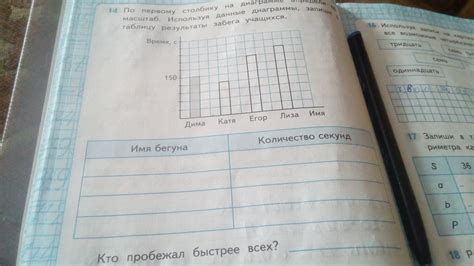 14 По первому столбику на диаграмме определи
масштаб. Используя данные диаграммы, запиши
таблицу результаты забега учащихся.
Время, с
150
Дима Катя Егор Лиза Имя
Имя бегуна Количество секунд
Кто пробежал быстрее всех?
16 Используя
все возможные
тридцать
одиннадцать
17 Запиши в
риметра
S 36
a
b
P
18